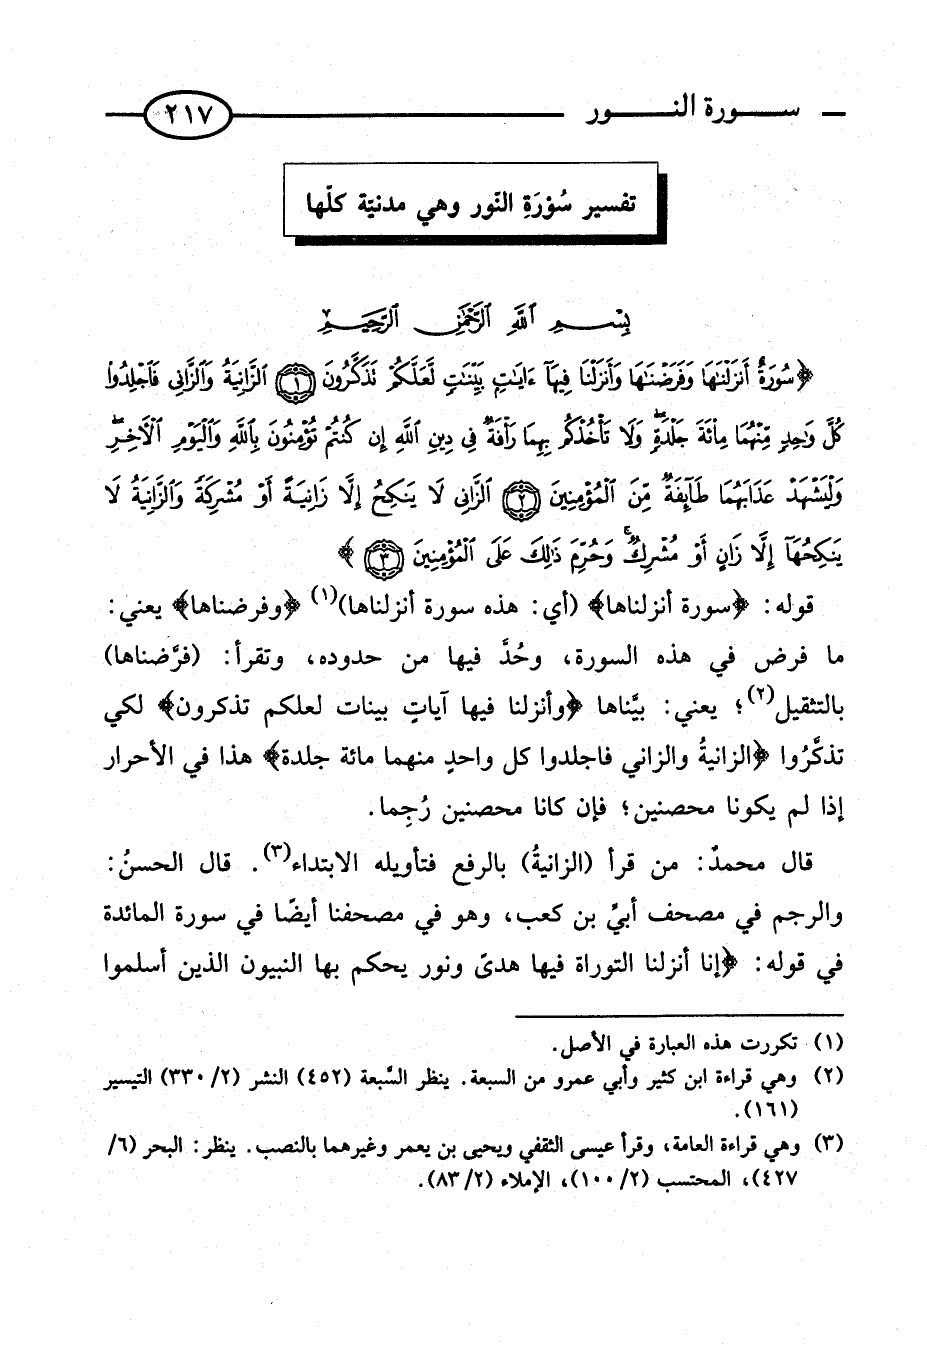 سورة النور ٢١٧
تفسير سُوْرَةِ النّور وهي مدنيّة كلّها
بِسْمِ اللَّهِ الرَّحْمَٰنِ الرَّحِيمِ
﴿سُورَةٌ أَنزَلْنَٰهَا وَفَرَضْنَٰهَا وَأَنزَلْنَا فِيهَآ ءَايَٰتٍۭ بَيِّنَٰتٍ لَّعَلَّكُمْ تَذَكَّرُونَ ١ ٱلزَّانِيَةُ وَٱلزَّانِى فَٱجْلِدُوا۟
كُلَّ وَٰحِدٍ مِّنْهُمَا مِا۟ئَةَ جَلْدَةٍ ۖ وَلَا تَأْخُذْكُم بِهِمَا رَأْفَةٌ فِى دِينِ ٱللَّهِ إِن كُنتُمْ تُؤْمِنُونَ بِٱللَّهِ وَٱلْيَوْمِ ٱلْءَاخِرِ ۖ
وَلْيَشْهَدْ عَذَابَهُمَا طَآئِفَةٌ مِّنَ ٱلْمُؤْمِنِينَ ٢ ٱلزَّانِى لَا يَنكِحُ إِلَّا زَانِيَةً أَوْ مُشْرِكَةً وَٱلزَّانِيَةُ لَا
يَنكِحُهَآ إِلَّا زَانٍ أَوْ مُشْرِكٌ ۚ وَحُرِّمَ ذَٰلِكَ عَلَى ٱلْمُؤْمِنِينَ ٣ ﴾
قوله: ﴿سورة أنزلناها﴾ (أي: هذه سورة أنزلناها)(١) ﴿وفرضناها﴾ يعني:
ما فرض في هذه السورة، وحُدَّ فيها من حدوده، وتقرأ: (فرَّضناها)
بالتثقيل(٢)؛ يعني: بيَّناها ﴿وأنزلنا فيها آياتٍ بينات لعلكم تذكرون﴾ لكي
تذكَّرُوا ﴿الزانيةُ والزاني فاجلدوا كل واحدٍ منهما مائة جلدة﴾ هذا في الأحرار
إذا لم يكونا محصنين؛ فإن كانا محصنين رُجِما.
قال محمدٌ: من قرأ (الزانيةُ) بالرفع فتأويله الابتداء(٣). قال الحسنُ:
والرجم في مصحف أبيِّ بن كعب، وهو في مصحفنا أيضًا في سورة المائدة
في قوله: ﴿إنا أنزلنا التوراة فيها هدىً ونور يحكم بها النبيون الذين أسلموا
(١) تكررت هذه العبارة في الأصل.
(٢) وهي قراءة ابن كثير وأبي عمرو من السبعة. ينظر السَّبعة (٤٥٢) النشر (٢/ ٣٣٠) التيسير
(١٦١).
(٣) وهي قراءة العامة، وقرأ عيسى الثقفي ويحيى بن يعمر وغيرهما بالنصب. ينظر: البحر (٦/
٤٢٧)، المحتسب (٢/ ١٠٠)، الإملاء (٢/ ٨٣).